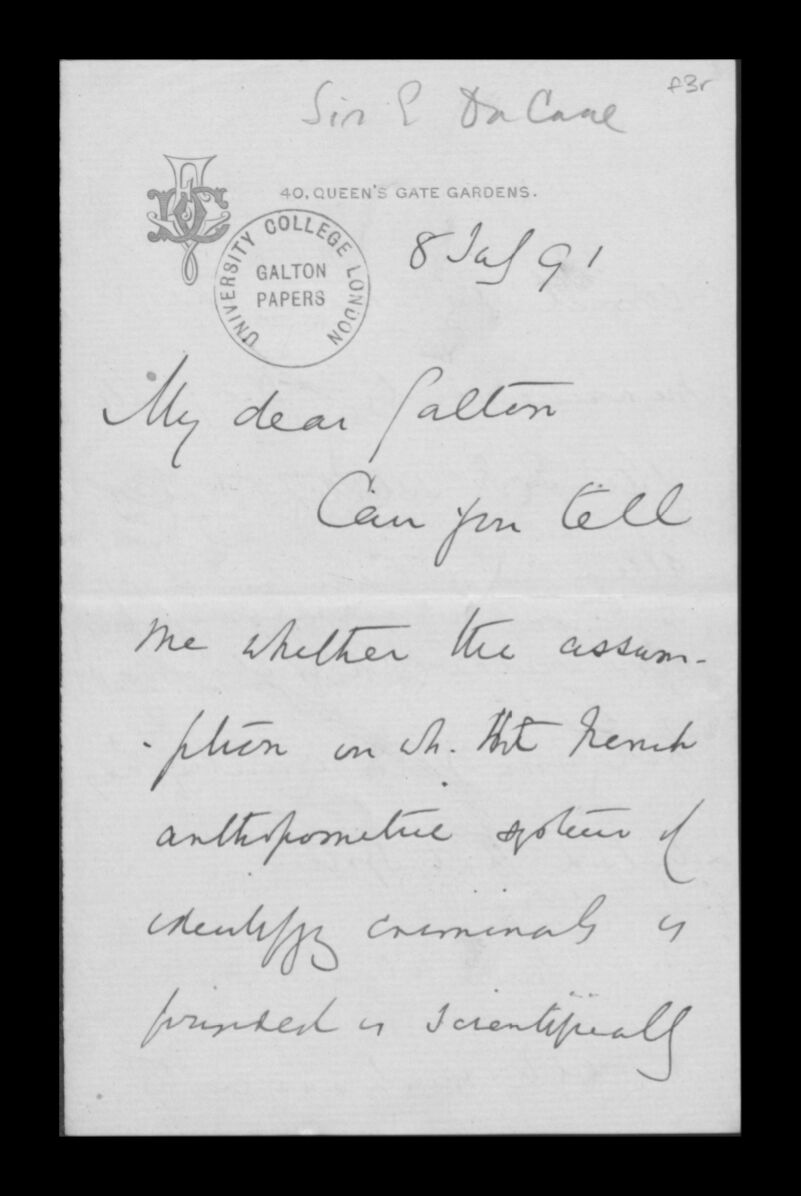 f3r
Sir E Du Cane
40, QUEEN'S GATE GARDENS.
UNIVERSITY COLLEGE LONDON
GALTON
PAPERS
8 July 91
My dear Galton
Can you tell
me whether the assum-
-ption on wh. the French
anthropometric system of
identifyg criminals is
founded is scientifically